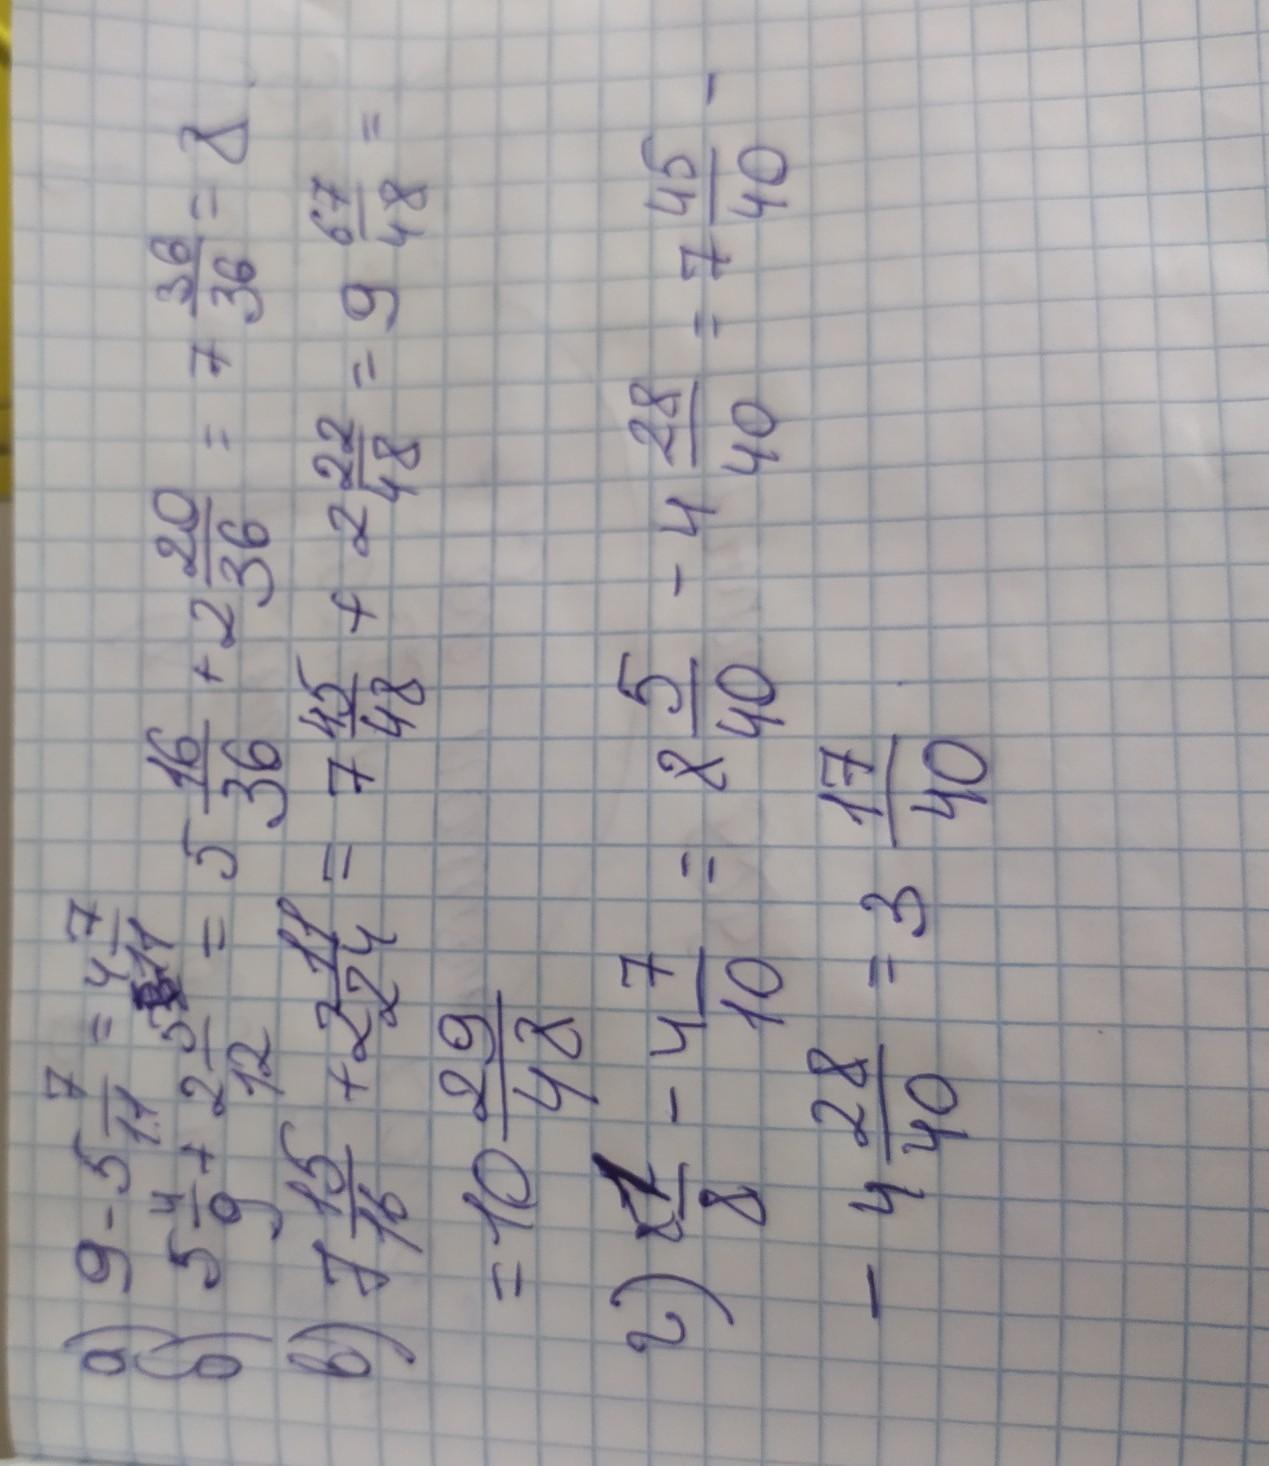 а) 9 - 5 7/11 = 4 7/11
б) 5 4/9 + 2 5/12 = 5 16/36 + 2 20/36 = 7 36/36 = 8
в) 7 15/16 + 2 11/24 = 7 45/48 + 2 22/48 = 9 67/48 =
= 10 29/48
г) 8 1/8 - 4 7/10 = 8 5/40 - 4 28/40 = 7 45/40 -
- 4 28/40 = 3 17/40